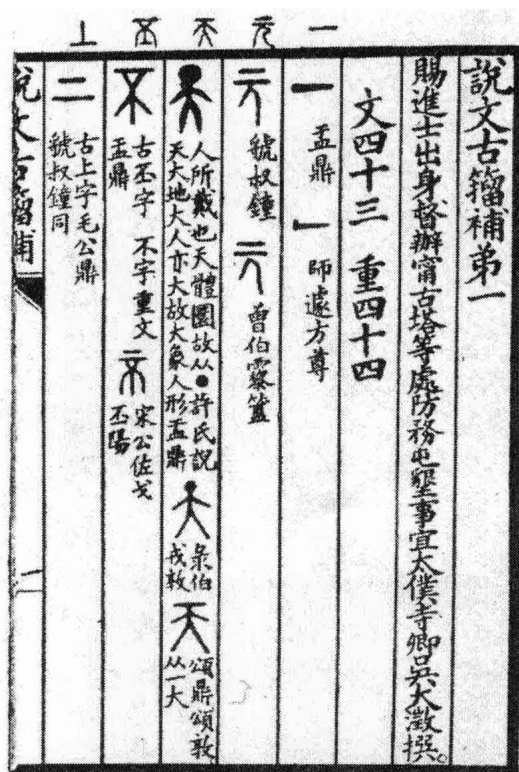 一 元 天 丕 丄
說文古籀補弟一
賜進士出身督辦甯古塔等處防務屯墾事宜太僕寺卿吳大澂撰。
文四十三 重四十四
一 盂鼎 一 師遽方尊
元 虢叔鐘 元 曾伯霥簠
天 人所戴也天體圜故从●許氏說
天大地大人亦大故大象人形盂鼎
天 彔伯
戎敦
天 頌鼎頌敦
从一大
不 古丕字 不字重文
盂鼎
不 宋公佐戈
丕陽
二 古上字毛公鼎
虢叔鐘同
說文古籀補
一